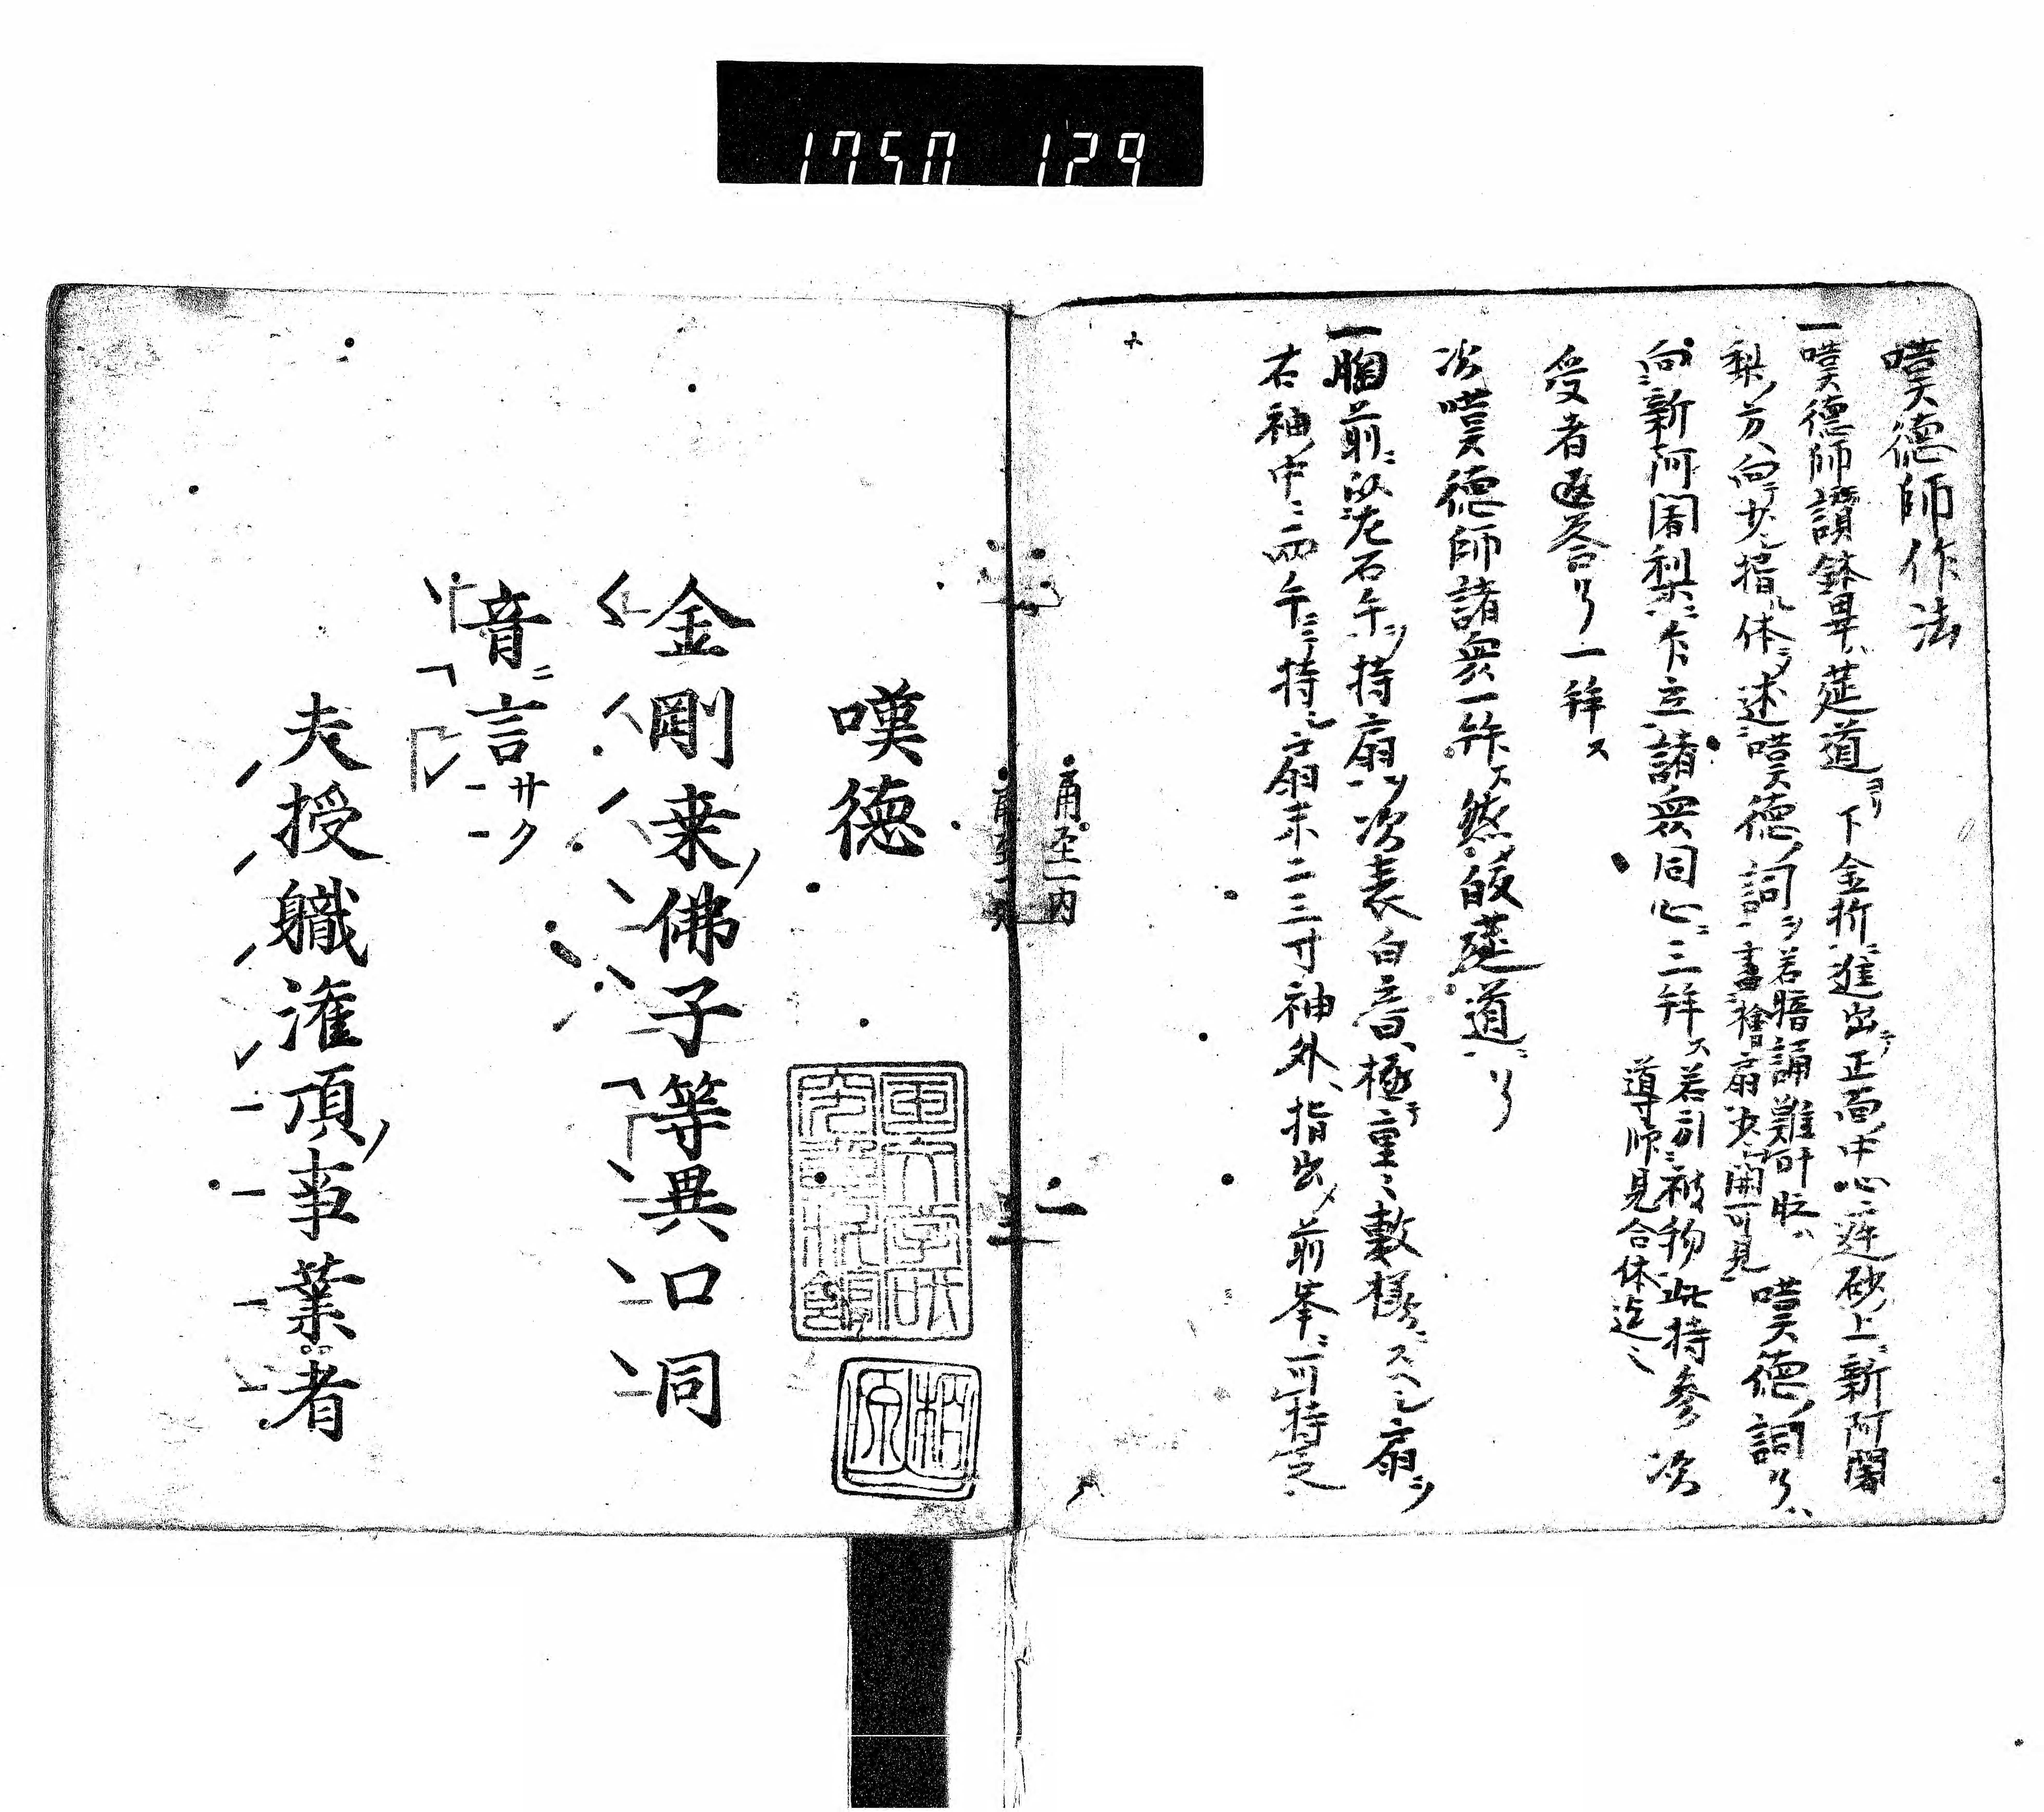 1750 129
嘆德師作法
一嘆德師讚鉢畢、莚道ヨリ下金折ニ進出テ正面中心ニ莚砂上ニ新阿闍
梨ノ方ヘ向テ少シ揖体シテ述嘆德ノ詞ヲ若暗誦難叶時ハ嘆德ノ詞了ハ
詞ヲ書檜扇ニ少開可見
向新阿闍梨ニ乍立諸衆同心ニ三拜ス若引被物此時参 次
導師見合体迄ニ
受者返答了一拜ス
次嘆德師諸衆一拜ス然シテ皈莚道ニ了
一胸前ニ以左右手ヲ持扇ヲ次表白音極テ重ニ敷樣ニスヘシ扇ヲ
右袖ノ中ニ両手ニ持之扇末二三寸袖外ヘ指出シ前峯ニ可持之
甬至一内
一
嘆德
金剛来佛子等異口同
音ニ言サク
夫授職灌頂ノ事業者